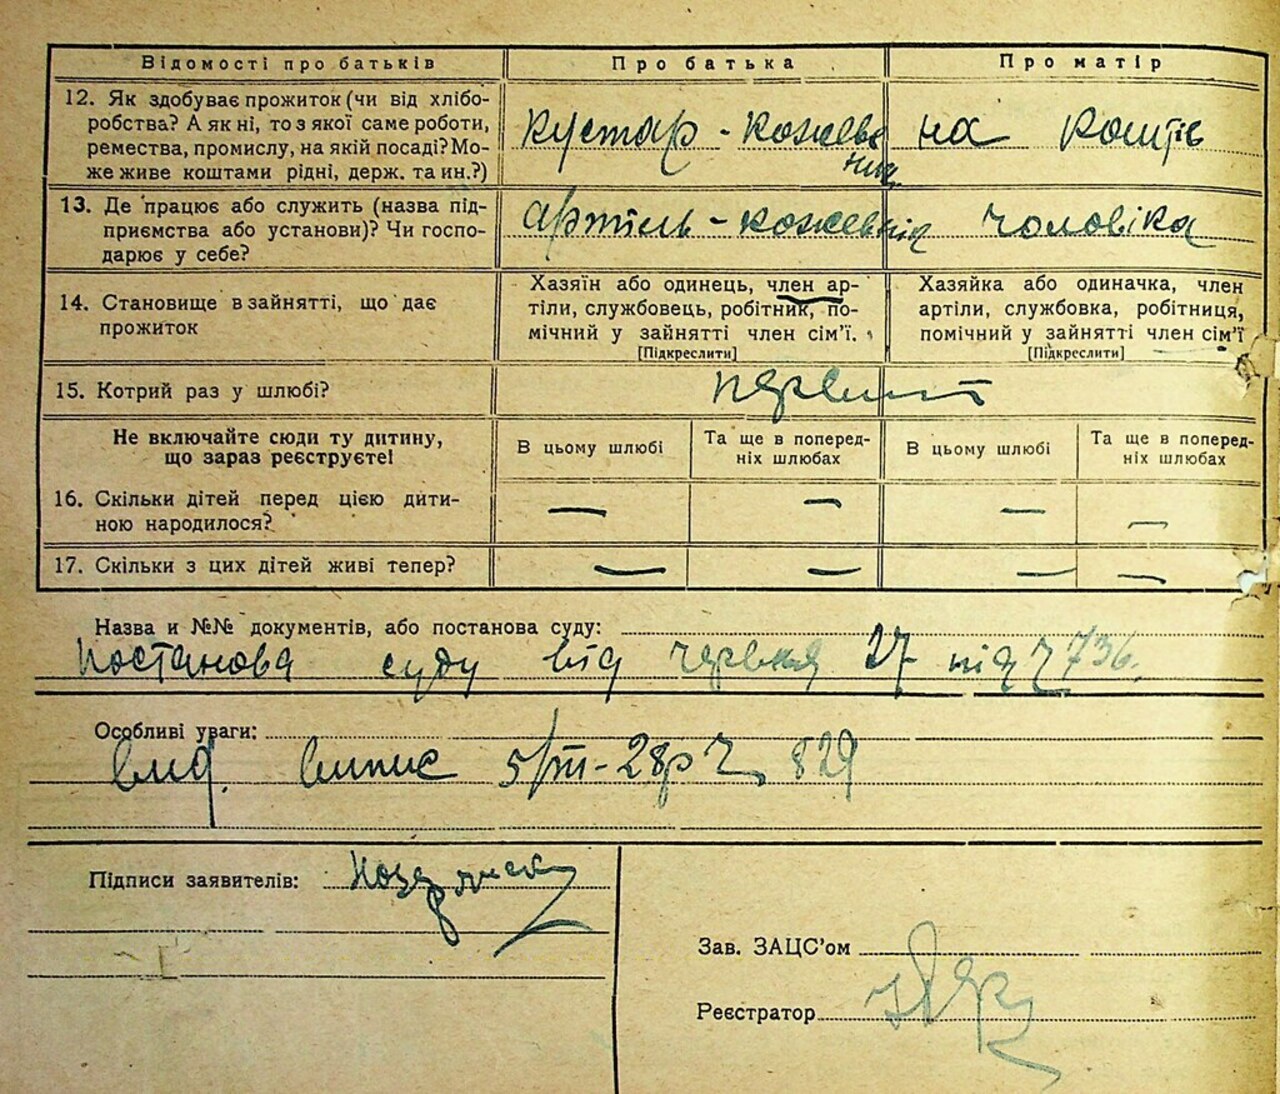 Відомості про батьків
Про батька
Про матір
12. Як здобуває прожиток (чи від хлібо-
робства? А як ні, то з якої саме роботи,
ремества, промислу, на якій посаді? Мо-
же живе коштами рідні, держ. та ин.?)
кустар - кожевв
ник
на коштів
13. Де працює або служить (назва під-
приємства або установи)? Чи госпо-
дарює у себе?
артіль - кожевнік
чоловіка
14. Становище в зайнятті, що дає
прожиток
Хазяїн або одинець, член ар-
тіли, службовець, робітник, по-
мічний у зайнятті член сім'ї.
[Підкреслити]
Хазяйка або одиначка, член
артіли, службовка, робітниця,
помічний у зайнятті член сім'ї
[Підкреслити]
15. Котрий раз у шлюбі?
Не включайте сюди ту дитину,
що зараз реєструєте!
В цьому шлюбі
Та ще в поперед-
ніх шлюбах
В цьому шлюбі
Та ще в поперед-
ніх шлюбах
16. Скільки дітей перед цією дити-
ною народилося?
— — — —
17. Скільки з цих дітей живі тепер?
— — — —
Назва и №№ документів, або постанова суду:
Постанова суду від червня 27 під ч 736.
Особливі уваги:
вид. випис 5/III-28р ч. 829
Підписи заявителів:
Зав. ЗАЦС'ом
Реєстратор